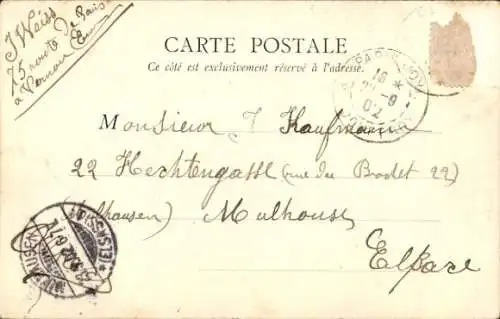 J Weiss
75 route de Paris
à Vernon Eure
CARTE POSTALE
Ce côté est exclusivement réservé à l'adresse.
Monsieur J Kaufmann
22 Hechtengassl (rue du Brodet 22)
Mulhouse
Elsace